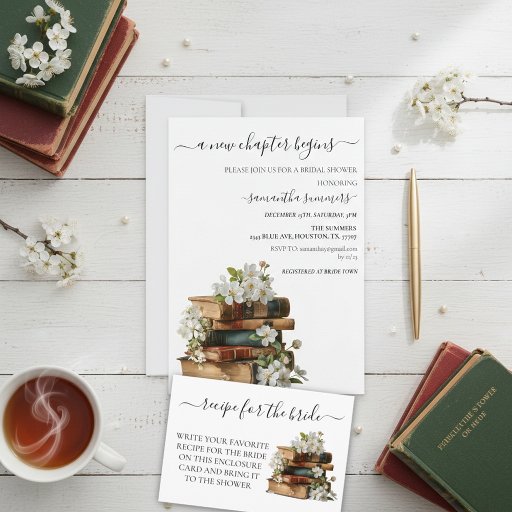 a new chapter begins
PLEASE JOIN US FOR A BRIDAL SHOWER
HONORING
samantha summers
DECEMBER 13TH, SATURDAY, 3PM
THE SUMMERS
2345 BLUE AVE, HOUSTON, TX. 77707
RSVP TO: samandsay@gmail.com
by 11/23
REGISTERED AT BRIDE TOWN
recipe for the bride
WRITE YOUR FAVORITE
RECIPE FOR THE BRIDE
ON THIS ENCLOSURE
CARD AND BRING IT
TO THE SHOWER